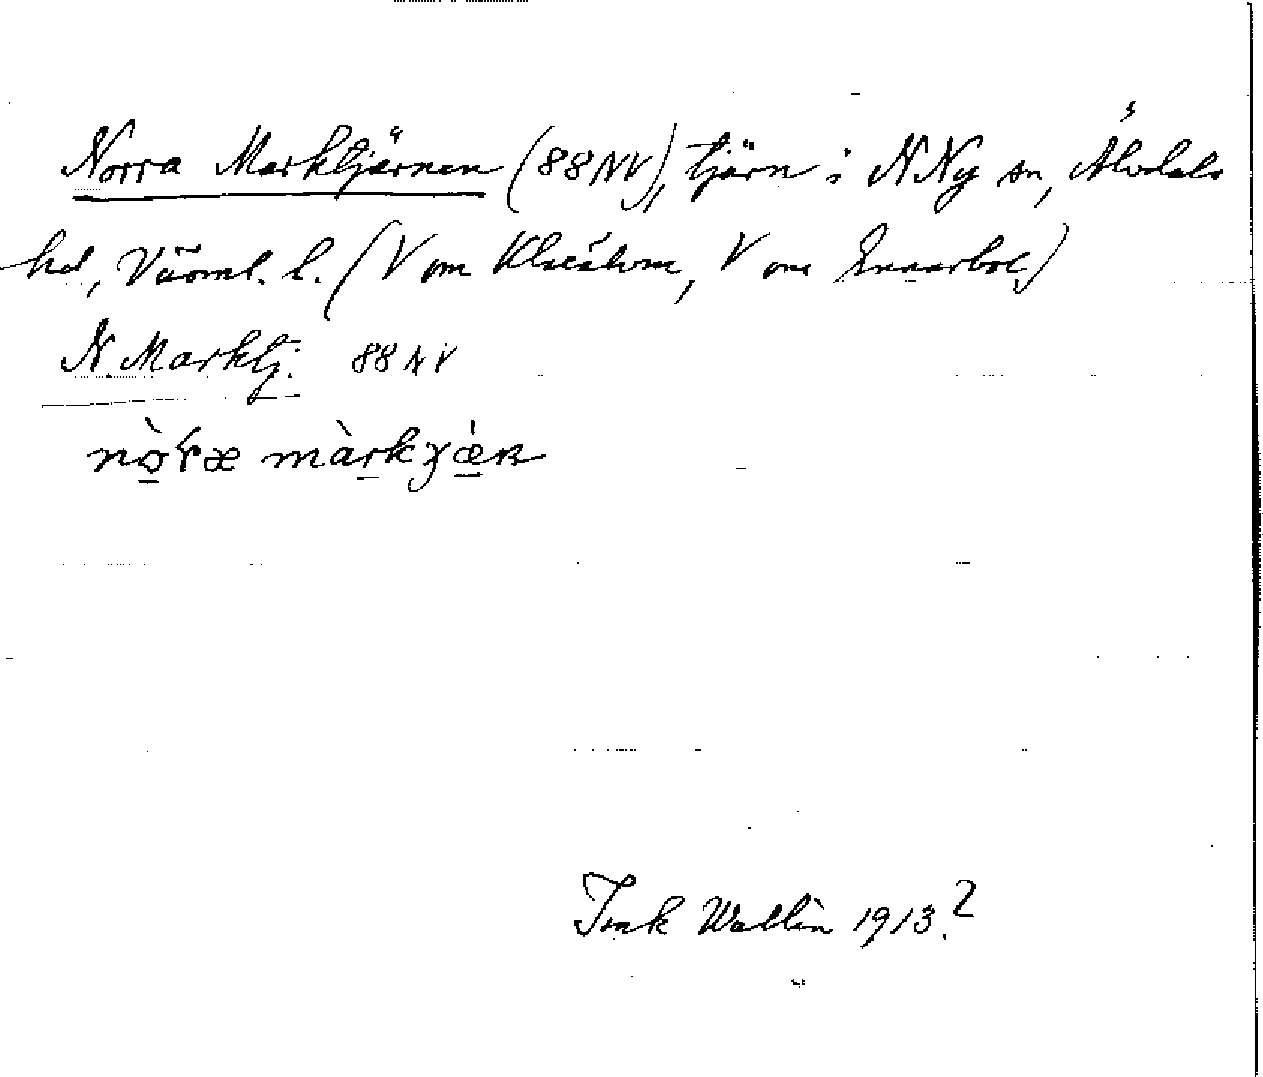 Norra Marktjärnen (88 NV), tjärn i N Ny sn, Älvdals
hd, Värml. l. (V om Klarälven, V om
N Marktj. 88 NV
nò̱ræ màrkjæ̀rn
Wallin 1913?